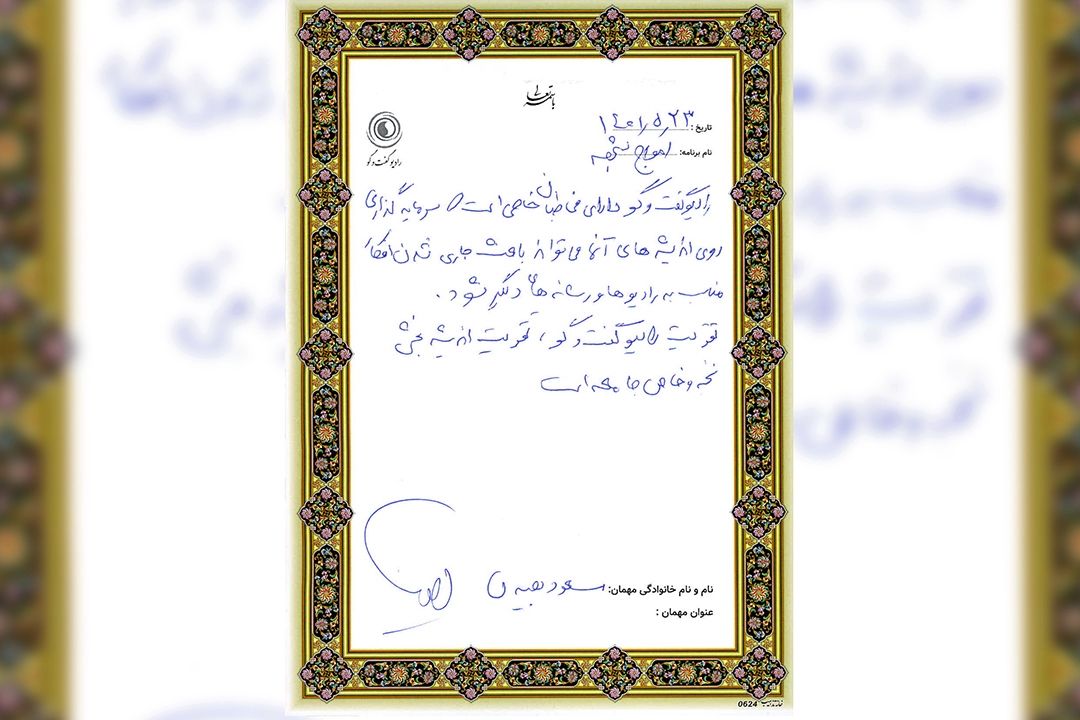 باسمه تعالی
رادیو گفت و گو
تاریخ: ۱۴۰۱/۵/۲۳
نام برنامه: امواج
رادیو گفت و گو دارای مخاطبان خاصی است که سرمایه گذاری
روی اندیشه های آنها می تواند باعث جاری شدن افکار
مناسب به رادیوها و رسانه های دیگر شود.
تقویت رادیو گفت و گو، تقویت اندیشه بخش
نخبه و خاص جامعه است
نام و نام خانوادگی مهمان: مسعود
عنوان مهمان :
0624